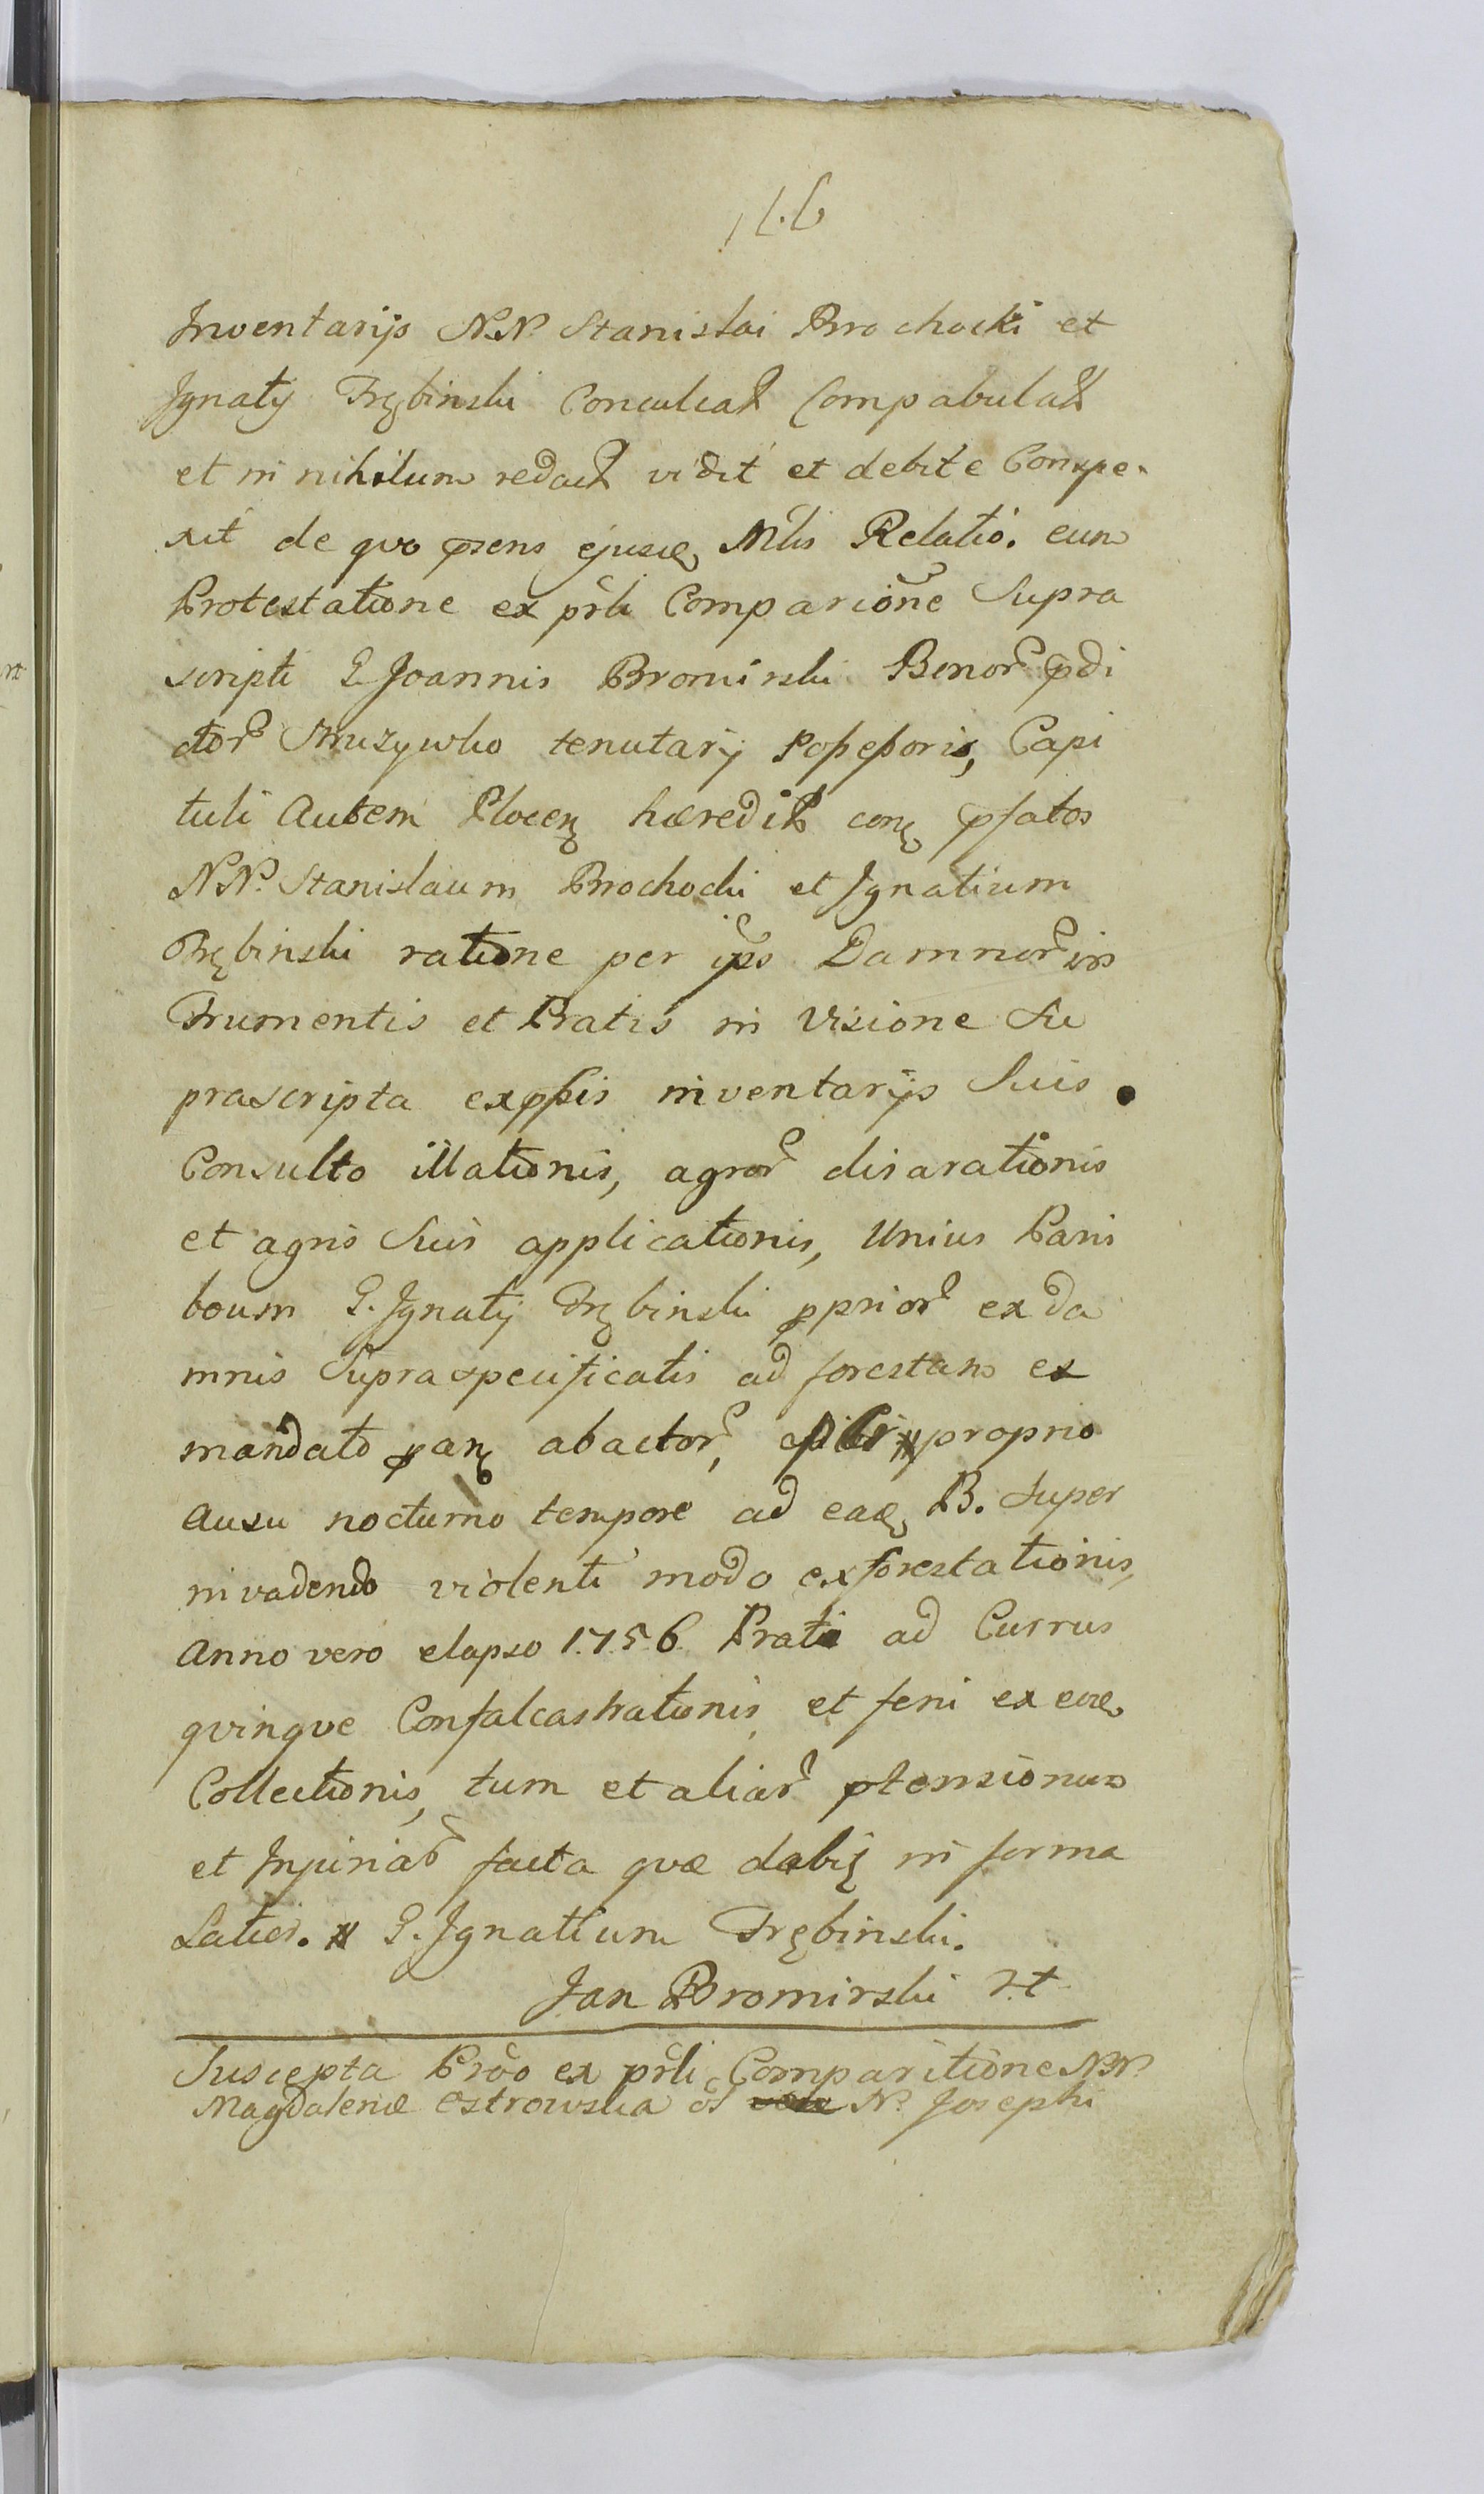 Inventarijs N.N. Stanislai Brochocki et
Ignatij Trębinski Conculcat Compabulat
et in nihilum redact vidit et debite Conspe-
xit de quo prens ejusd Mlis Relatio. cum
Protestatione ex prli Comparione Supra
scripti G Joannis Bromirski Bonor pdi
ctor tenutarij Possessoris, Capi
tuli autem Plocen hæredit con pfatos
N.N. Stanislaum Brochocki et Ignatium
Trębinski ratione per ipos Damnor in
Frumentis et Pratis in Visione Su
prascripta exppssis inventarijs Suis
Consulto illationis, agror disarationis
et agris Suis applicationis, Unius Paris
boum G. Ignatij Trębinski pprior ex da
mnis Supraspecificatis ad forestam ex
mandato pan abactor, proprio
Ausu nocturno tempore ad ead B. super
invadendo violenti modo exforestationis,
Anno vero elapso 1756 Prati ad Currus
qvinqve Confalcastrationis et feni ex eod
Collectionis, tum et aliar ptensionum
et Injuriar facta qvæ dabit in forma
Latior. G. Ignatium Trębinski.
Jan Bromirski
Suscepta Prõo ex prli Comparitione N.N.
Magdalenæ Ostrowska N. Josephi